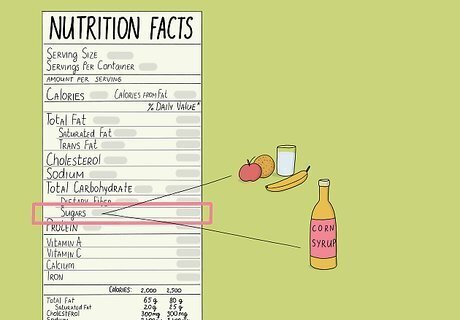 NUTRITION FACTS
SERVING SIZE
SERVINGS PER CONTAINER
AMOUNT PER SERVING
CALORIES CALORIES FROM FAT
% DAILY VALUE*
TOTAL FAT
SATURATED FAT
TRANS FAT
CHOLESTEROL
SODIUM
TOTAL CARBOHYDRATE
DIETARY FIBER
SUGARS
PROTEIN
VITAMIN A
VITAMIN C
CALCIUM
IRON
CALORIES: 2,000 2,500
TOTAL FAT 65g 80g
SATURATED FAT 20g 25g
CHOLESTEROL 300mg 300mg
SODIUM
CORN
SYRUP